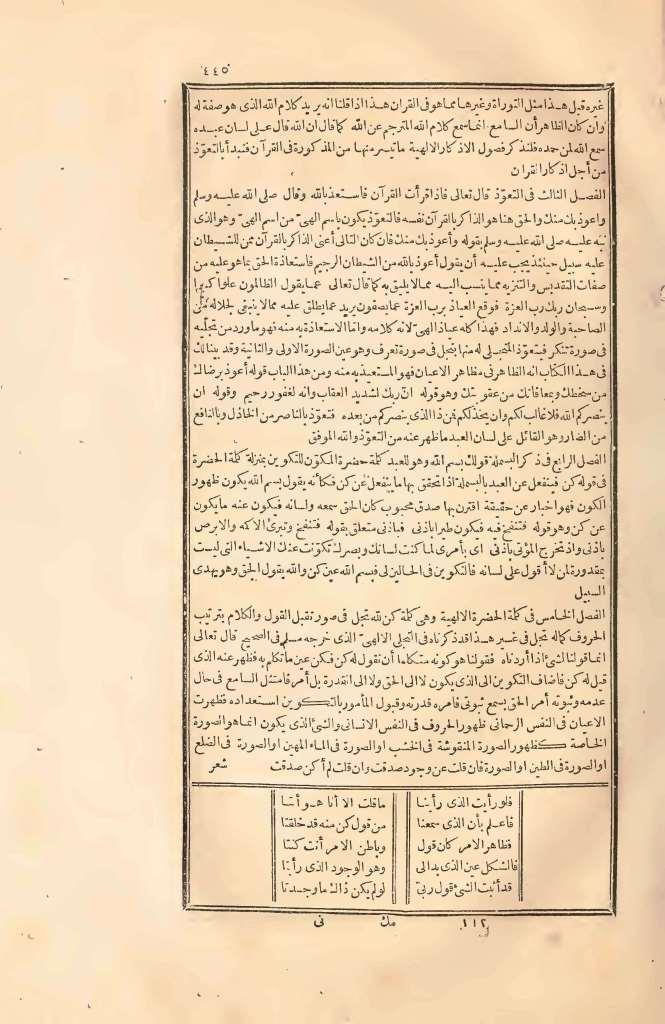 ٤٤٥
غيره قيل هذا مثل التوراة وغيرها مما هو في القرآن هذا اذا قلنا انه يريد كلام الله الذي هو صفة له
وان كان الظاهر أن السامع انما سمع كلام الله المترجم عن الله كما قال ان الله قال على لسان عبده
سمع الله لمن حمده فلنذكر فصول الاذكار الالهية ما تيسر منها من المذكورة في القرآن فنبدأ بالتعوّذ
من أجل اذكار القرآن
الفصل الثالث في التعوّذ قال تعالى فاذا قرأت القرآن فاستعذ بالله وقال صلى الله عليه وسلم
واعوذ بك منك والحق هنا هو الذاكر بالقرآن نفسه فالتعوّذ يكون باسم الهيّ من اسم الهيّ وهو الذي
نبه عليه صلى الله عليه وسلم بقوله وأعوذ بك منك فان كان التالى أعنى الذاكر بالقرآن ممن للشيطان
عليه سبيل حينئذ يجب عليه أن يقول أعوذ بالله من الشيطان الرجيم فاستعاذة الحق بما هو عليه من
صفات التقديس والتنزيه مما ينسب اليه مما لا يليق به كما قال تعالى عما يقول الظالمون علوا كبيرا
وسبحان ربك رب العزة فوقع العياذ برب العزة عما يصفون يريد عما يطلق عليه مما لا ينبغى لجلاله من
الصاحبة والولد والانداد فهذا كله عياذ الهيّ لانه كلامه واما الاستعاذة به منه فهو ما ورد من تجليه
في صورة تنكر فيتعوّذ المتجلى له منها بتجل في صورة تعرف وهو عين الصورة الاولى والثانية وقد بينا لك
في هذا الكتاب انه الظاهر في مظاهر الاعيان فهو المستعيذ به منه ومن هذا الباب قوله أعوذ برضاك
من سخطك وبمعافاتك من عقوبتك وهو قوله ان ربك لشديد العقاب وانه لغفور رحيم وقوله ان
ينصركم الله فلا غالب لكم وان يخذلكم فمن ذا الذي ينصركم من بعده فتعوّذ بالناصر من الخاذل وبالنافع
من الضار وهو القائل على لسان العبد ما ظهر عنه من التعوّذ والله الموفق
الفصل الرابع في ذكر البسملة قولك بسم الله وهو للعبد كلمة حضرة المكوّن للتكوين بمنزلة كلمة الحضرة
في قوله كن فينفعل عن العبد بالبسملة اذا تحقق بها ما ينفعل عن كن فكأنه يقول بسم الله يكون ظهور
الكون فهو اخبار عن حقيقة اقترن بها صدق محبوب كان الحق سمعه ولسانه فيكون عنه ما يكون
عن كن وهو قوله فتنفخ فيه فيكون طيرا باذنى فباذنى متعلق بقوله فتنفخ وتبرئ الاكمه والابرص
باذنى واذ تخرج الموتى باذنى اي بأمري لما كنت لسانك وبصرك تكوّنت عنك الاشياء التى ليست
بمقدورة لمن لا أقول على لسانه فالتكوين في الحالين لى فبسم الله عين كن والله يقول الحق وهو يهدى
السبيل
الفصل الخامس في كلمة الحضرة الالهية وهى كلمة كن لله تجل في صور تقبل القول والكلام بترتيب
الحروف كما له تجل في غير هذا قد ذكرناه في التجلى الالهيّ الذي خرجه مسلم في الصحيح قال تعالى
انما قولنا لشئ اذا أردناه فقولنا هو كونه متكلما أن نقول له كن فكن عين ما تكلم به فظهر عنه الذي
قيل له كن فأضاف التكوين الى الذي يكون لا الى الحق ولا الى القدرة بل أمر فامتثل السامع في حال
عدمه وثبوته أمر الحق بسمع ثبوتى فامره قدرته وقبول المأمور بالتكوين استعداده فظهرت
الاعيان في النفس الرحمانى ظهور الحروف في النفس الانسانى والشئ الذي يكون انما هو الصورة
الخاصة كظهور الصورة المنقوشة في الخشب او الصورة في الماء المهين او الصورة في الضلع
او الصورة في الطين او الصورة فان قلت عن وجود صدقت وان قلت لم أكن صدقت شعر
فلو رأيت الذي رأينا ما قلت الا أنا هو أنتا
فاعلم بأن الذي سمعنا من قول كن منه قد خلقنا
فظاهر الامر كان قول وباطن الامر أنت كنتا
فالشكل عين الذي بدا لى وهو الوجود الذي رأينا
قد أثبت الشئ قول ربى لو لم يكن ذاك ما وجدنا
١١٢ مك نى